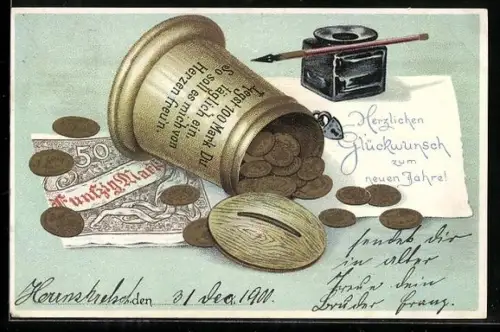 Legst 100 Mark Du
täglich ein.
So soll es mich von
Herzen freu'n.
Herzlichen
Glückwunsch
zum
neuen Jahre!
50
Fünfzig Mark
den 31 dec. 1901.
sendet dir
in alter
Treue dein
Bruder Franz.